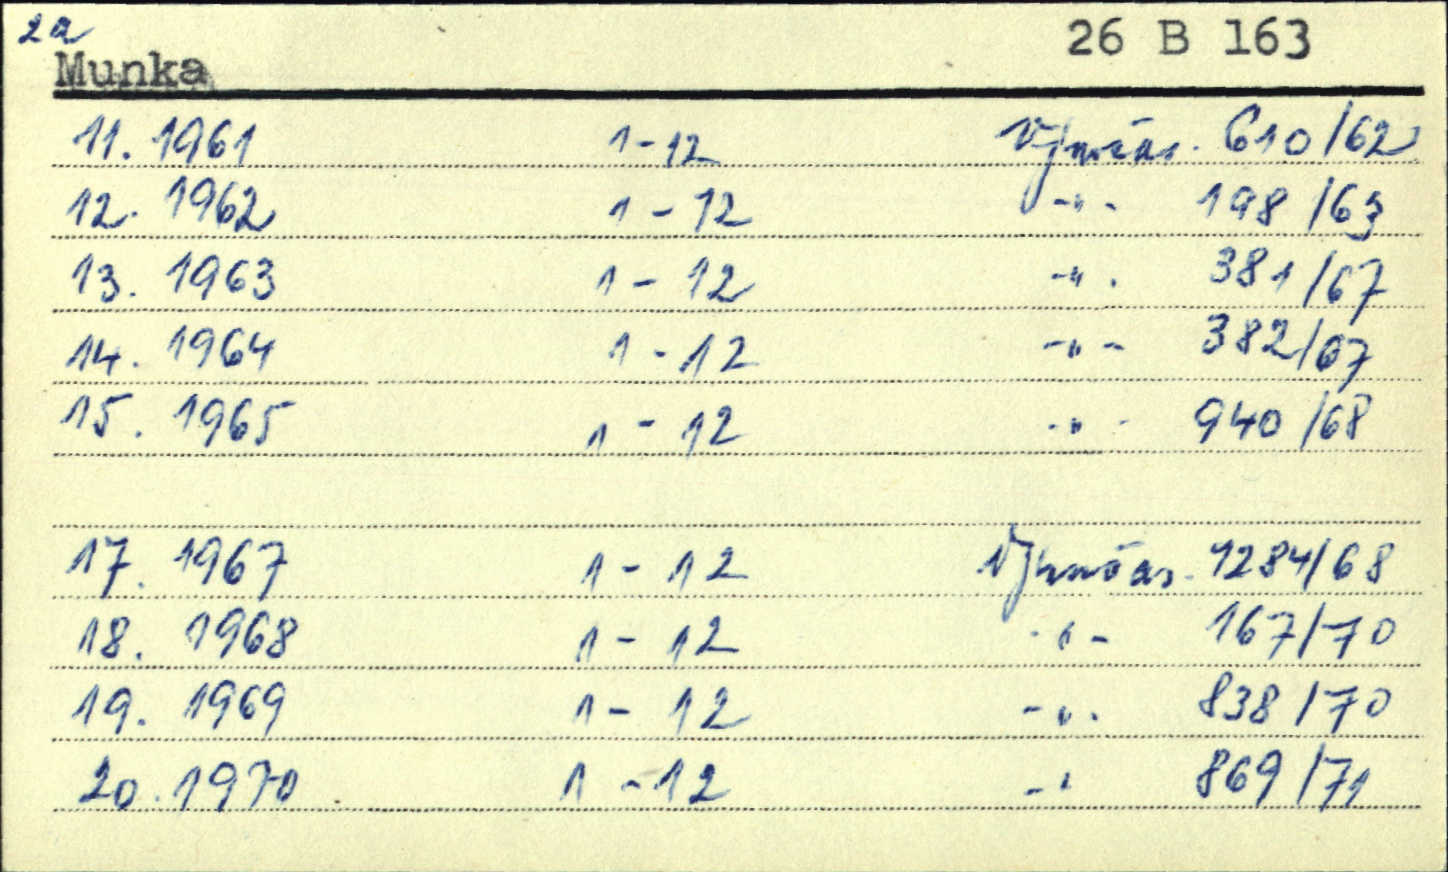 2a
Munka 26 B 163
11. 1961 1-12 610/62
12. 1962 1-12 -"- 198/63
13. 1963 1-12 -"- 381/67
14. 1964 1-12 -"- 382/67
15. 1965 1-12 -"- 940/68
17. 1967 1-12 1284/68
18. 1968 1-12 -"- 167/70
19. 1969 1-12 -"- 838/70
20. 1970 1-12 -"- 869/71